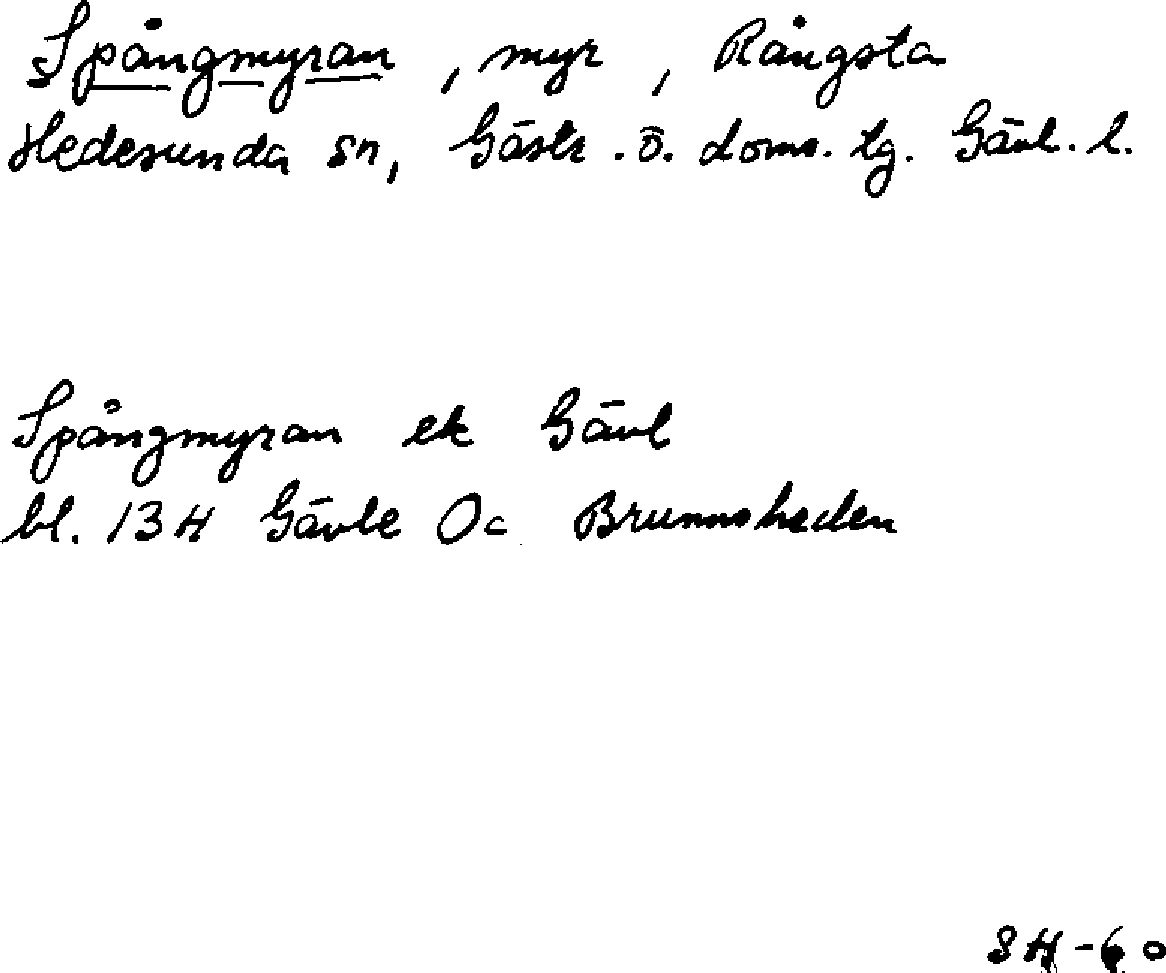 Spångmyran, myr, Rångsta
Hedesunda sn, Gästr. ö. doms. tg. Gävl. l.
Spångmyran ek Gävl
bl. 13H Gävle 0c Brunnsheden
SH-60